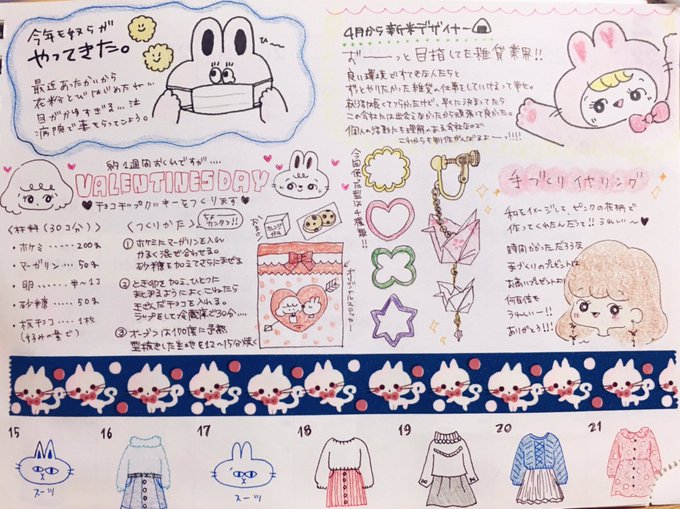 今年も奴らが
やってきた。
最近あたたかいから
花粉とびはじめたね…
目がかゆすぎる…泣
病院で薬もらってこよう。
4月から新米デザイナー
ず———っと目指してた雑貨業界!!
良い環境ですてきな人たちと
ずっとやりたかった雑貨の仕事をしていけるって幸せ。
就活は長くてつらかったけど、早くに決まってたら
この会社には出会えなかったから頑張って良かった。
個人の活動にも理解のある会社なので
これからも創作がんばるよーっ!!!!
約1週間おくれですが…
VALENTINES DAY
チョコチップクッキーをつくります
<材料(30コ分)>
・ホケミ・・・・・200g
・マーガリン・・・50g
・卵・・・・・半~1コ
・砂糖・・・・・50g
・板チョコ・・・1枚
(好みの量で)
<つくりかた>
ちょーカンタン!!
① ホケミとマーガリンを入れ
かるく混ぜ合わせる。
砂糖を加えてさらにまぜる
② とき卵を加え、ひとつに
まとまるようによくこねたら
きざんだチョコを入れる。
ラップをして冷蔵庫で30分…
③ オーブンは170度に予熱
型抜きした生地を12~15分焼く
今回使った型は4種類!!
手づくりイヤリング
和をイメージして、ピンクの花柄で
作ってくれたんだって!!うれしい~
時間かかっただろうな
手づくりのプレゼントは
お高いプレゼントより
何倍も
うれしい…!!
ありがとう!!
15
16
17
18
19
20
21
スーツ
スーツ